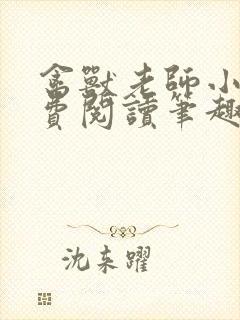 禽獸老師小
費閱讀筆趣
沈来躍